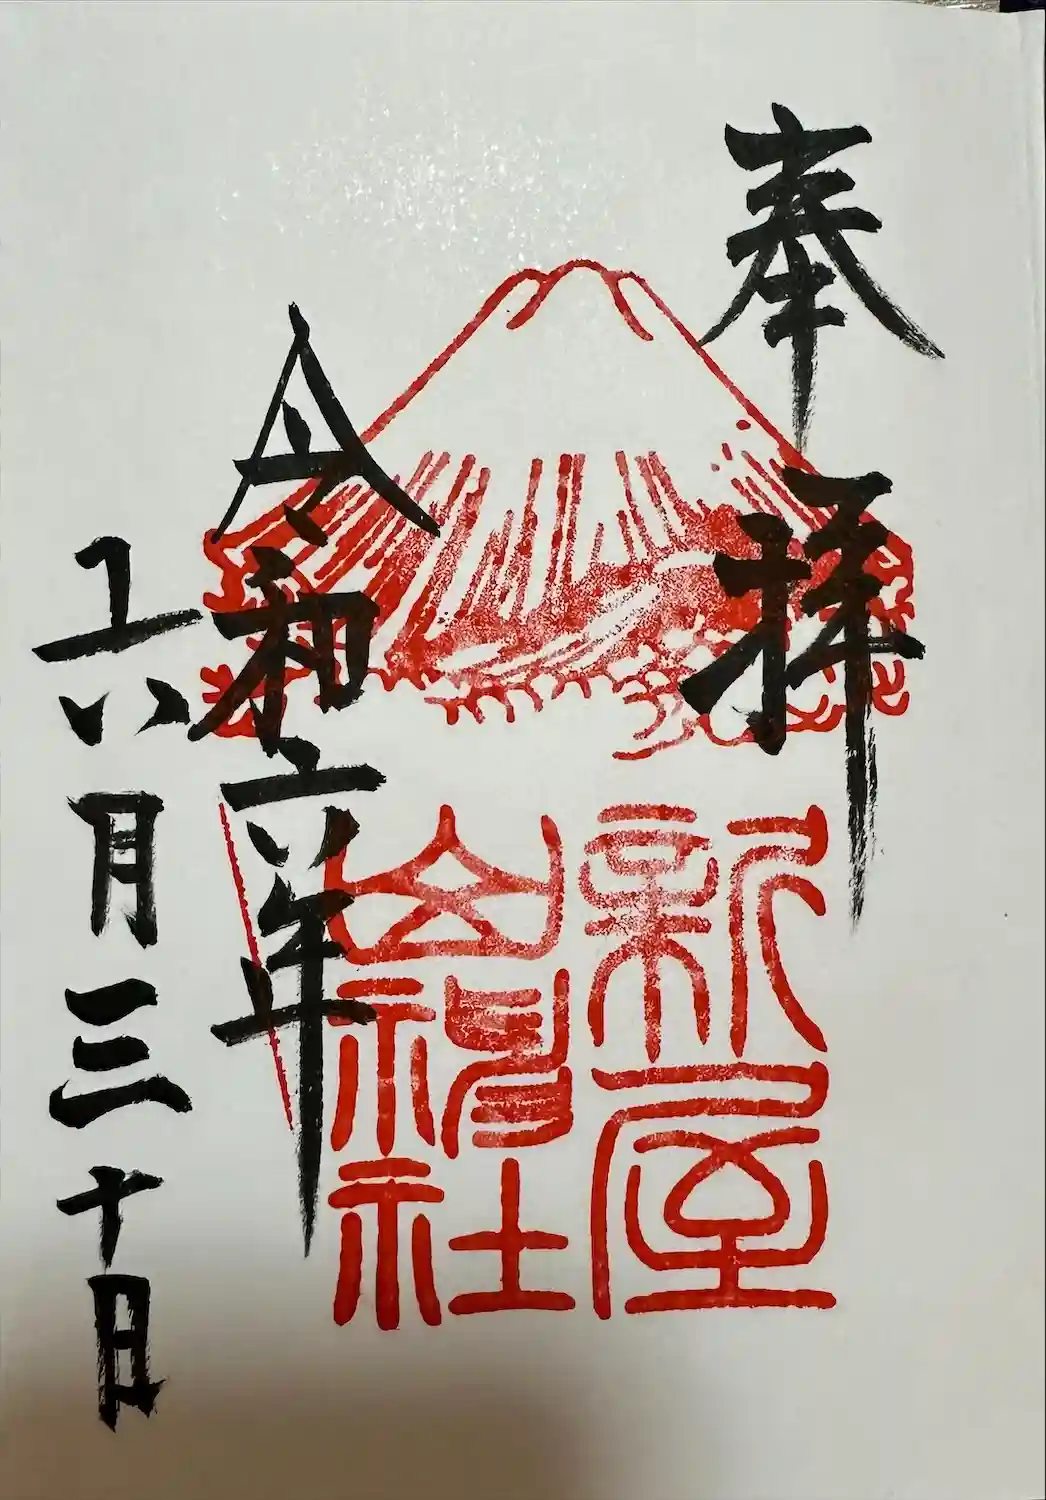 奉拝
新屋
山神社
令和六年
六月三十日